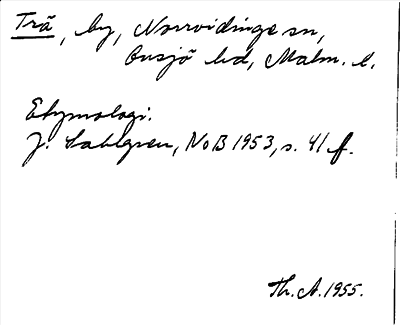 Trä, by, Norrvidinge sn,
Onsjö hd, Malm. l.
Etymologi:
J. Sahlgren, NoB 1953, s. 41 f.
Th. A. 1955.